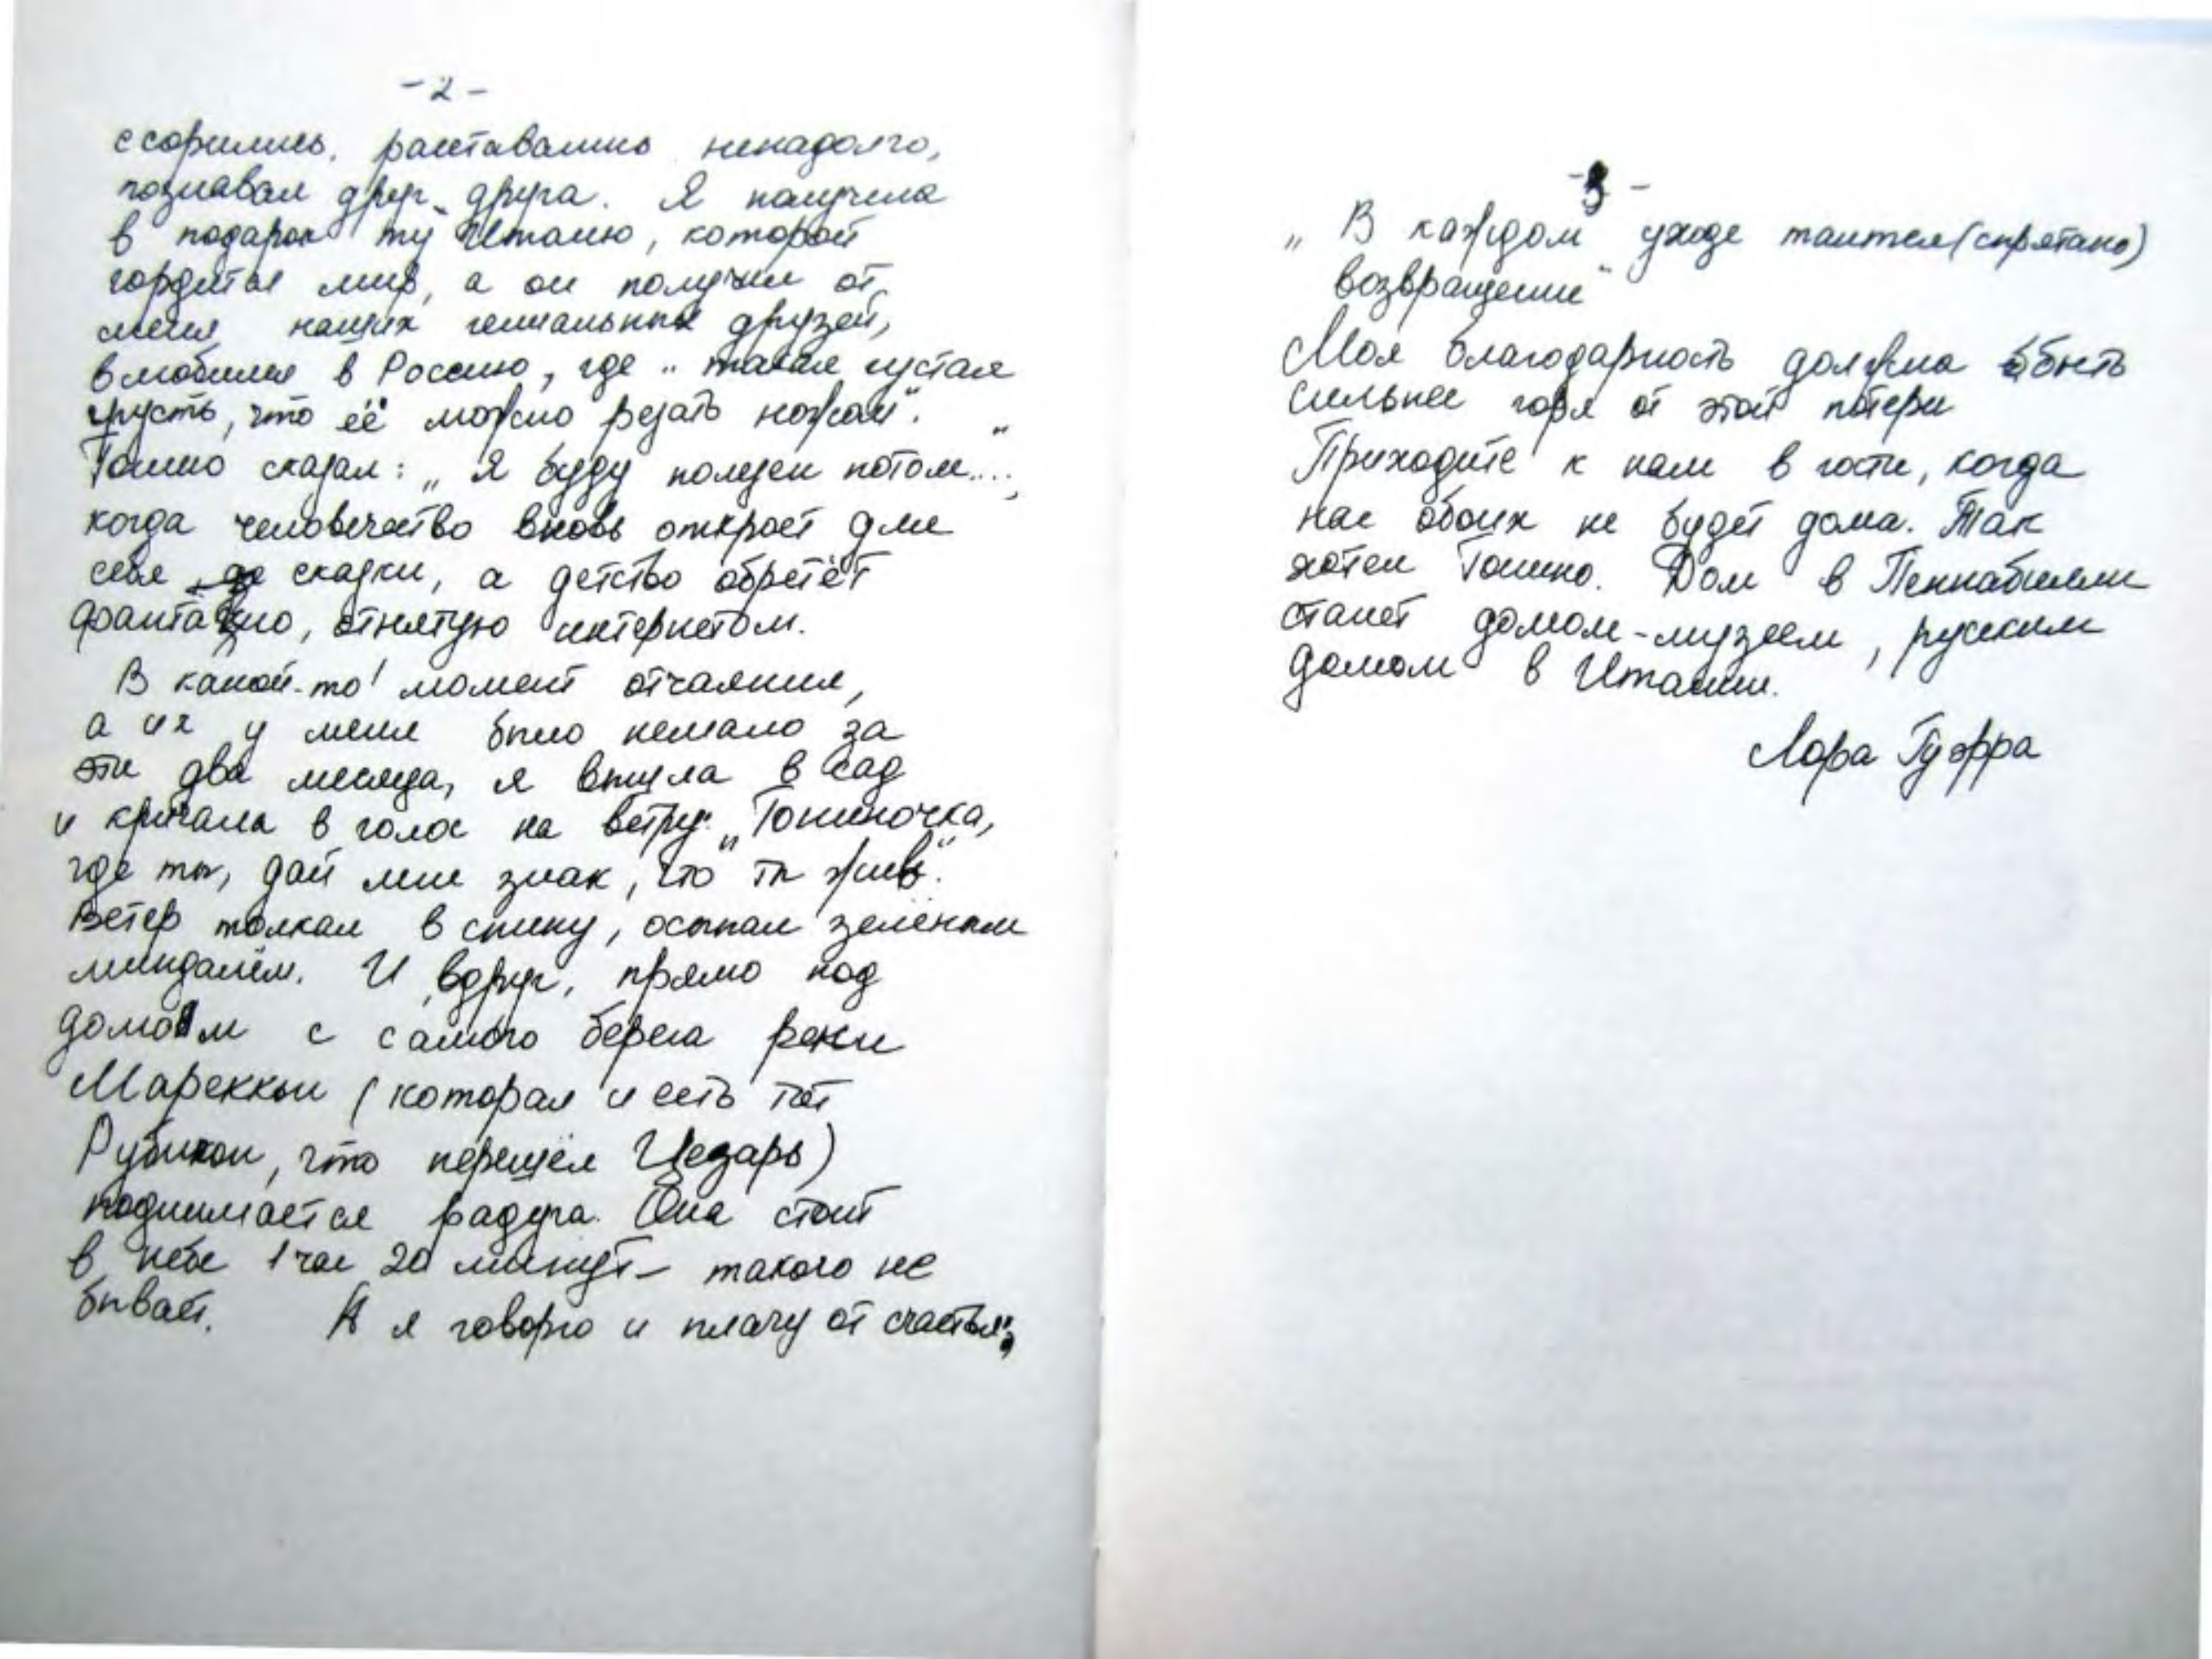 - 2 -
ссорились, расставались ненадолго,
познавая друг друга. Я получила
в подарок ту Италию, которой
гордится мир, а он получил от
меня наших гениальных друзей,
влюбился в Россию, где „такая густая
грусть, что её можно резать ножом".
Тонино сказал: „Я буду полезен потом....,
когда человечество вновь откроет для
себя сказки, а детство обретёт
фантазию, отнятую интернетом.
В какой-то момент отчаяния,
а их у меня было немало за
эти два месяца, я вышла в сад
и кричала в голос на ветру: „Тониночка,
где ты, дай мне знак, что ты жив".
Ветер толкал в спину, осыпал зелёным
миндалём. И вдруг, прямо под
домом с самого берега реки
Мареккьи (которая и есть тот
Рубикон, что перешёл Цезарь)
поднимается радуга. Она стоит
в небе 1 час 20 минут – такого не
бывает. А я говорю и плачу от счастья:
- 3 -
„В каждом уходе таится (спрятано)
возвращение"
Моя благодарность должна быть
сильнее горя от этой потери
Приходите к нам в гости, когда
нас обоих не будет дома. Так
хотел Тонино. Дом в Пеннабилли
станет домом-музеем, русским
домом в Италии.
Лора Гуэрра